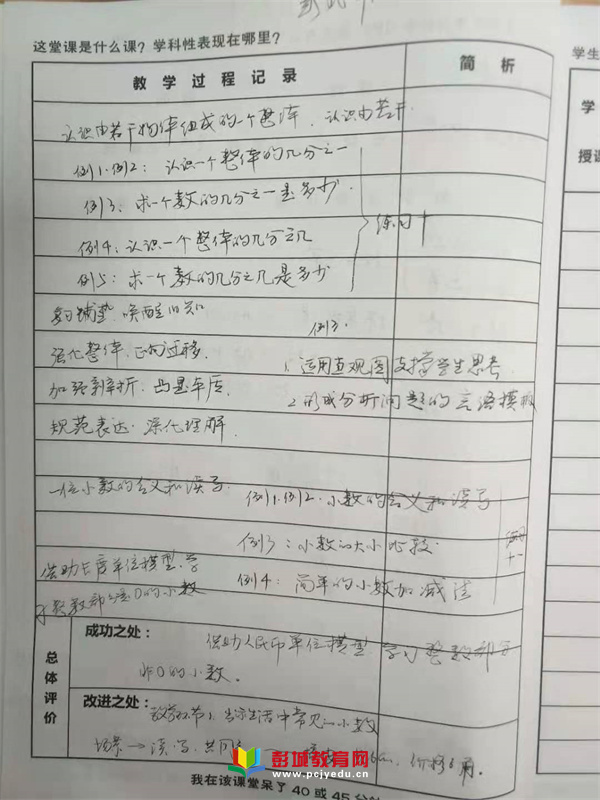 这堂课是什么课？学科性表现在哪里？
教学过程记录 简析
认识由若干物体组成的一个整体、认识由若干
例1.例2：认识一个整体的几分之一
例3：求一个数的几分之一是多少.
例4：认识一个整体的几分之几
例5：求一个数的几分之几是多少
练习十
铺垫·唤醒旧知
例3.
强化整体，正向迁移.
1.运用直观图支撑学生思考
加强辨析：凸显本质.
2.形成分析问题的言语模板
规范表达·深化理解.
一位小数的含义和读写.
例1.例2.小数的含义和读写
例3：小数的大小比较.
练习十一
借助长度单位模型.学
例4：简单的小数加减法
的小数
总体评价
成功之处：
借助人民币单位模型 学习整数部分
非0的小数.
改进之处：
生活中常见的小数
场景→读、写.
学生
学
授课
彭城教育网
www.pcjyedu.cn
我在该课堂呆了 40 或 45 分钟